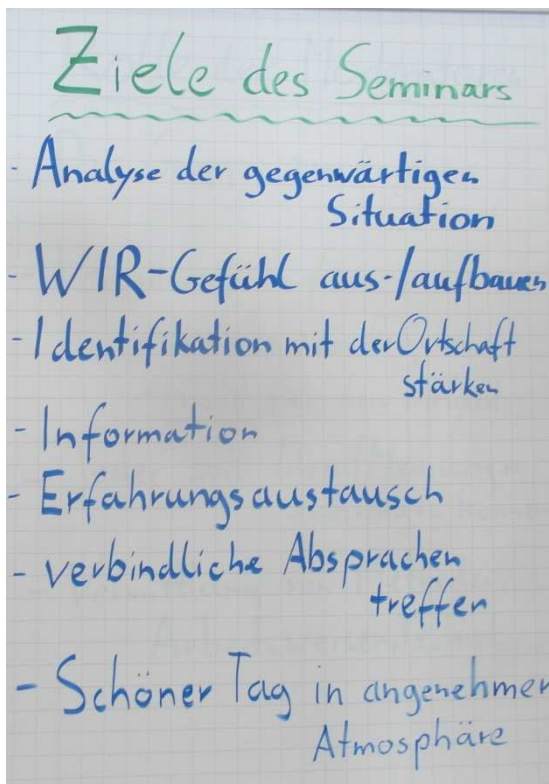 Ziele des Seminars
- Analyse der gegenwärtigen
Situation
- WIR-Gefühl aus-/aufbauen
- Identifikation mit der Ortschaft
stärken
- Information
- Erfahrungsaustausch
- verbindliche Absprachen
treffen
- Schöner Tag in angenehmer
Atmosphäre